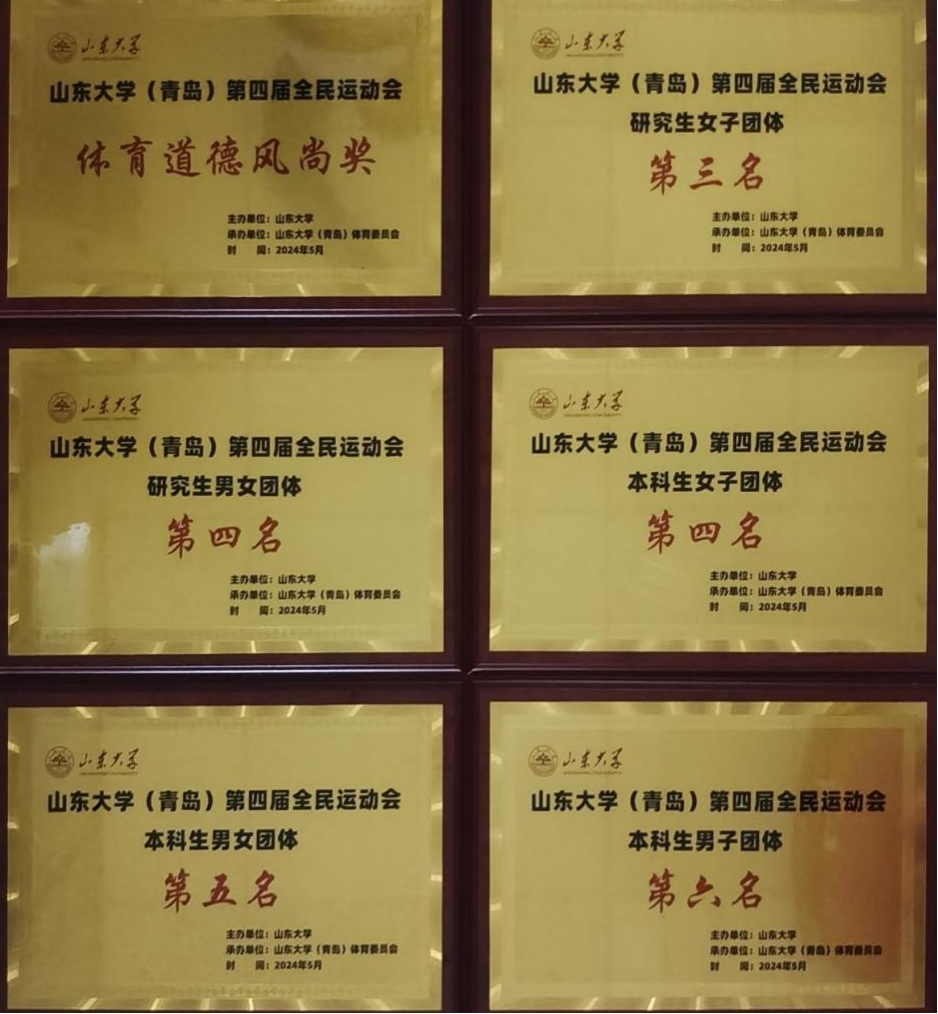 山东大学
山东大学（青岛）第四届全民运动会
体育道德风尚奖
主办单位：山东大学
承办单位：山东大学（青岛）体育委员会
时 间：2024年5月
山东大学
山东大学（青岛）第四届全民运动会
研究生女子团体
第三名
主办单位：山东大学
承办单位：山东大学（青岛）体育委员会
时 间：2024年5月
山东大学
山东大学（青岛）第四届全民运动会
研究生男女团体
第四名
主办单位：山东大学
承办单位：山东大学（青岛）体育委员会
时 间：2024年5月
山东大学
山东大学（青岛）第四届全民运动会
本科生女子团体
第四名
主办单位：山东大学
承办单位：山东大学（青岛）体育委员会
时 间：2024年5月
山东大学
SHANDONG UNIVERSITY
山东大学（青岛）第四届全民运动会
本科生男女团体
第五名
主办单位：山东大学
承办单位：山东大学（青岛）体育委员会
时 间：2024年5月
山东大学
SHANDONG UNIVERSITY
山东大学（青岛）第四届全民运动会
本科生男子团体
第六名
主办单位：山东大学
承办单位：山东大学（青岛）体育委员会
时 间：2024年5月